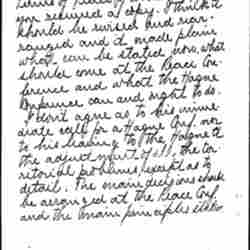 you secured a copy. I think it
should be revised and rear-
ranged and it made plain
what can be stated now, what
should come at the Peace Con-
ference and what the Hague
Conference can and ought to do.
I don't agree as to his imme-
diate call for a Hague Conf. nor
to his leaving to the Hague the
the adjustment of all the ter-
ritorial problems, except as to
detail. The main decisions should
be arranged at the Peace Conf.
and the main principles